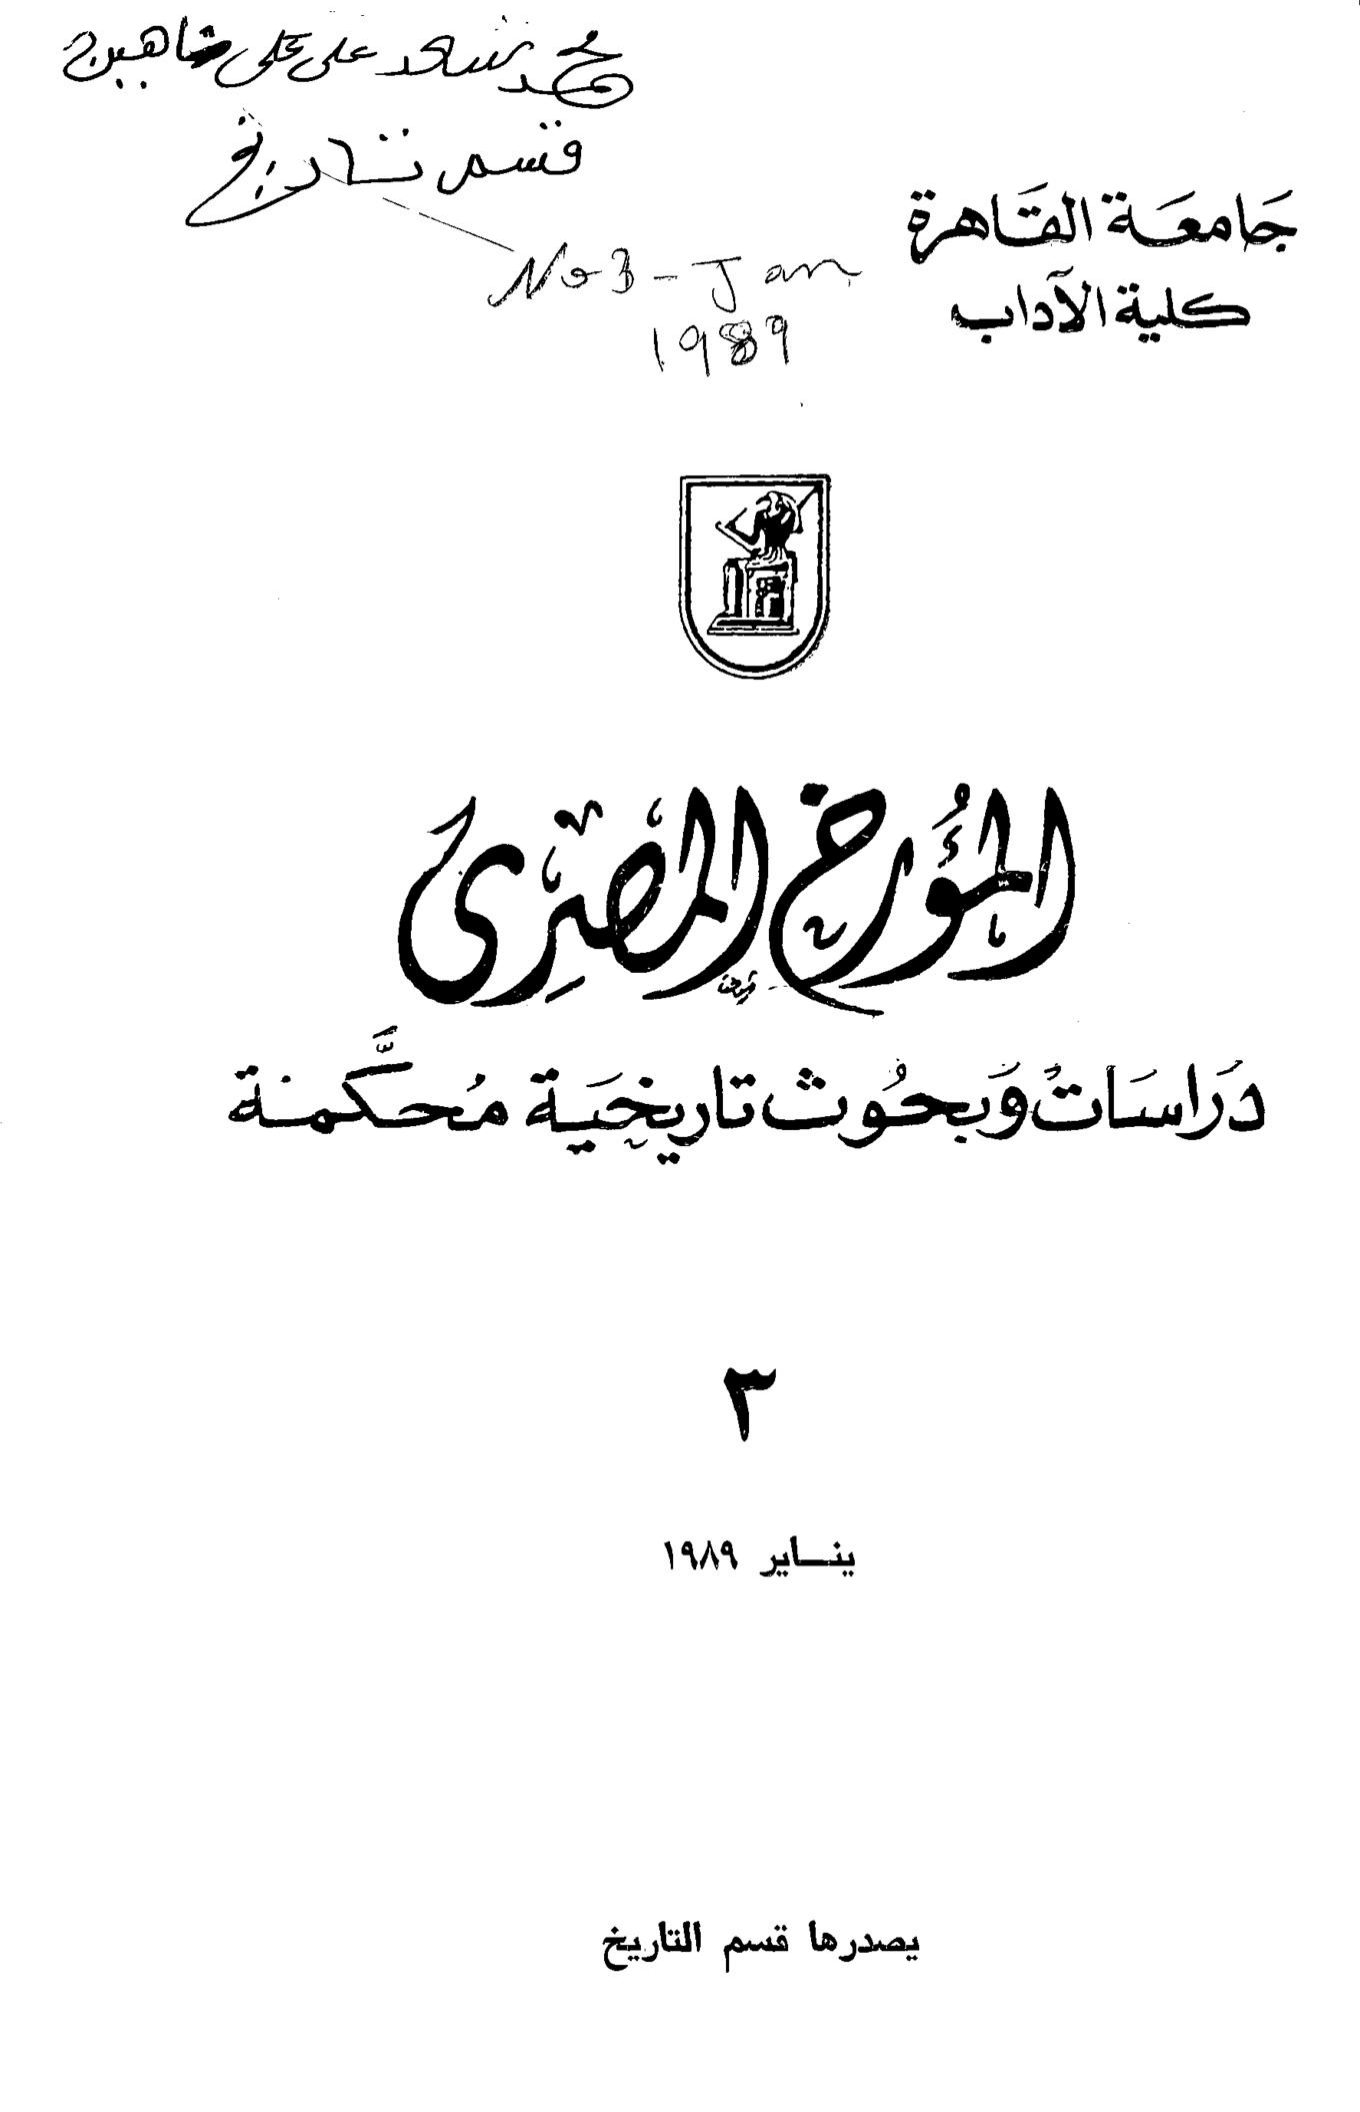 محمد سعد على على شاهين
قسم تاريخ
No 3 - Jan
1989
جَامعَة القَاهرة
كلية الآداب
المؤرخ المصرى
دَراسَات وَبحُوث تاريخيَة مُحكَّمنة
٣
ينـاير ١٩٨٩
يصدرها قسم التاريخ